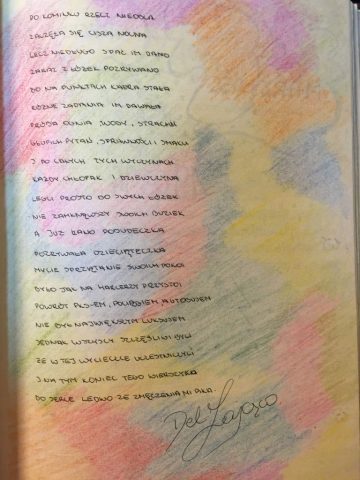 PO KOMINKU RZECZ NIEDŁUGA
ZACZĘŁA SIĘ CISZA NOCNA
LECZ NIEDŁUGO SPAĆ IM DANO
ZARAZ Z ŁÓŻEK POZRYWANO
BO NA PUNKTACH KADRA STAŁA
RÓŻNE ZADANIA IM DAWAŁA
PRÓBA OGNIA, WODY, STRACHU
GŁUPICH PYTAŃ, SPRAWNOŚCI I SMAKU
I PO CAŁYCH TYCH WYCZYNACH
KAŻDY CHŁOPAK I DZIEWCZYNA
LEGLI PROSTO DO SWYCH ŁÓŻEK
NIE ZAMKNĄWSZY SWOICH BUZIEK
A JUŻ RANO POBUDECZKA
POZRYWAŁA DZIECIĄTECZKA
MYCIE SPRZĄTANIE SWOICH POKOI
BYŁO JAK NA HARCERZY PRZYSTOI
POWRÓT PKS-EM, POCIĄGIEM, AUTOBUSEM
NIE BYŁ NAJWIĘKSZYM LUKSUSEM
JEDNAK WSZYSCY SZCZĘŚLIWI BYLI
ŻE W TEJ WYCIECZCE UCZESTNICZYLI
I NA TYM KONIEC TEGO WIERSZYKA
BO SERCE LEDWO ZE ZMĘCZENIA MI PIKA.